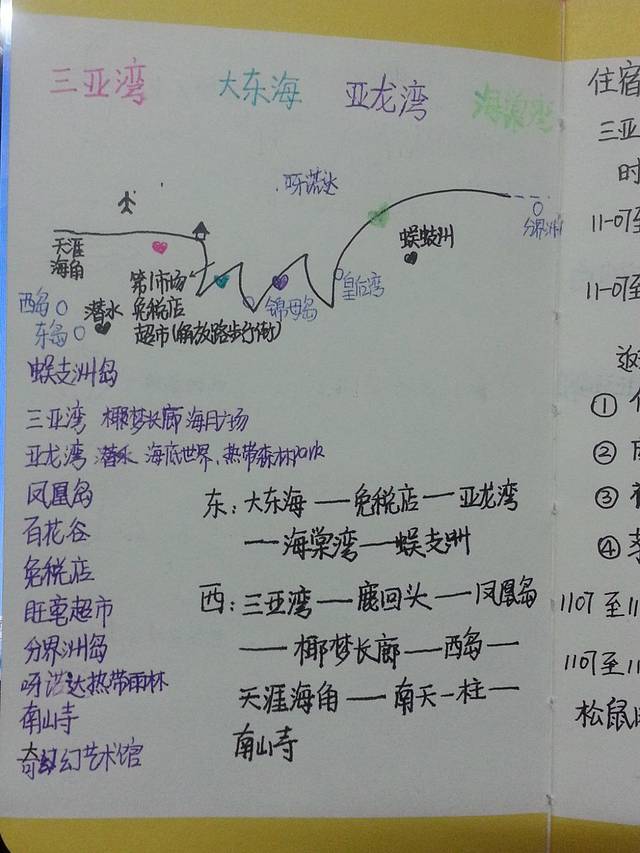 三亚湾 大东海 亚龙湾 海棠湾
呀诺达
天涯
海角
第1市场
免税店
超市(解放路步行街)
潜水
西岛
东岛
锦母岛
皇后湾
蜈蚑洲
分界洲
蜈支洲岛
三亚湾 椰梦长廊 海月广场
亚龙湾 潜水 海底世界、热带森林
凤凰岛
百花谷
免税店
旺毫超市
分界洲岛
呀诺达热带雨林
南山寺
奇幻艺术馆
东:大东海——免税店——亚龙湾
——海棠湾——蜈支洲
西:三亚湾——鹿回头——凤凰岛
——椰梦长廊——西岛——
天涯海角——南天一柱——
南山寺
住宿
三亚
时
11-07至
11-07至
返
①
②
③
④
1107至11
1107至11
松鼠